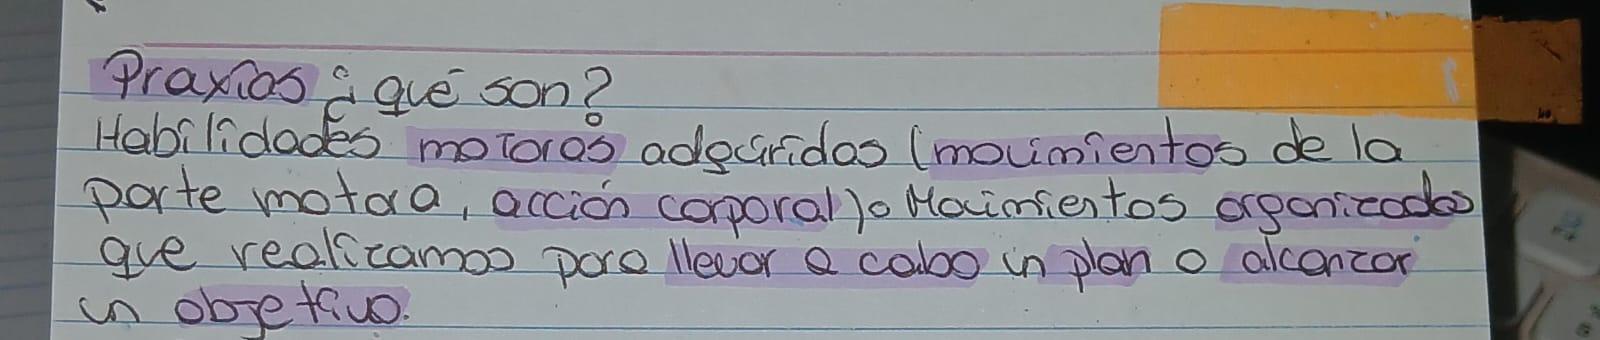 Praxias ¿qué son?
Habilidades motoras adquiridas (movimientos de la
parte motora, acción corporal). Movimientos organizados
que realizamos para llevar a cabo un plan o alcanzar
un objetivo.